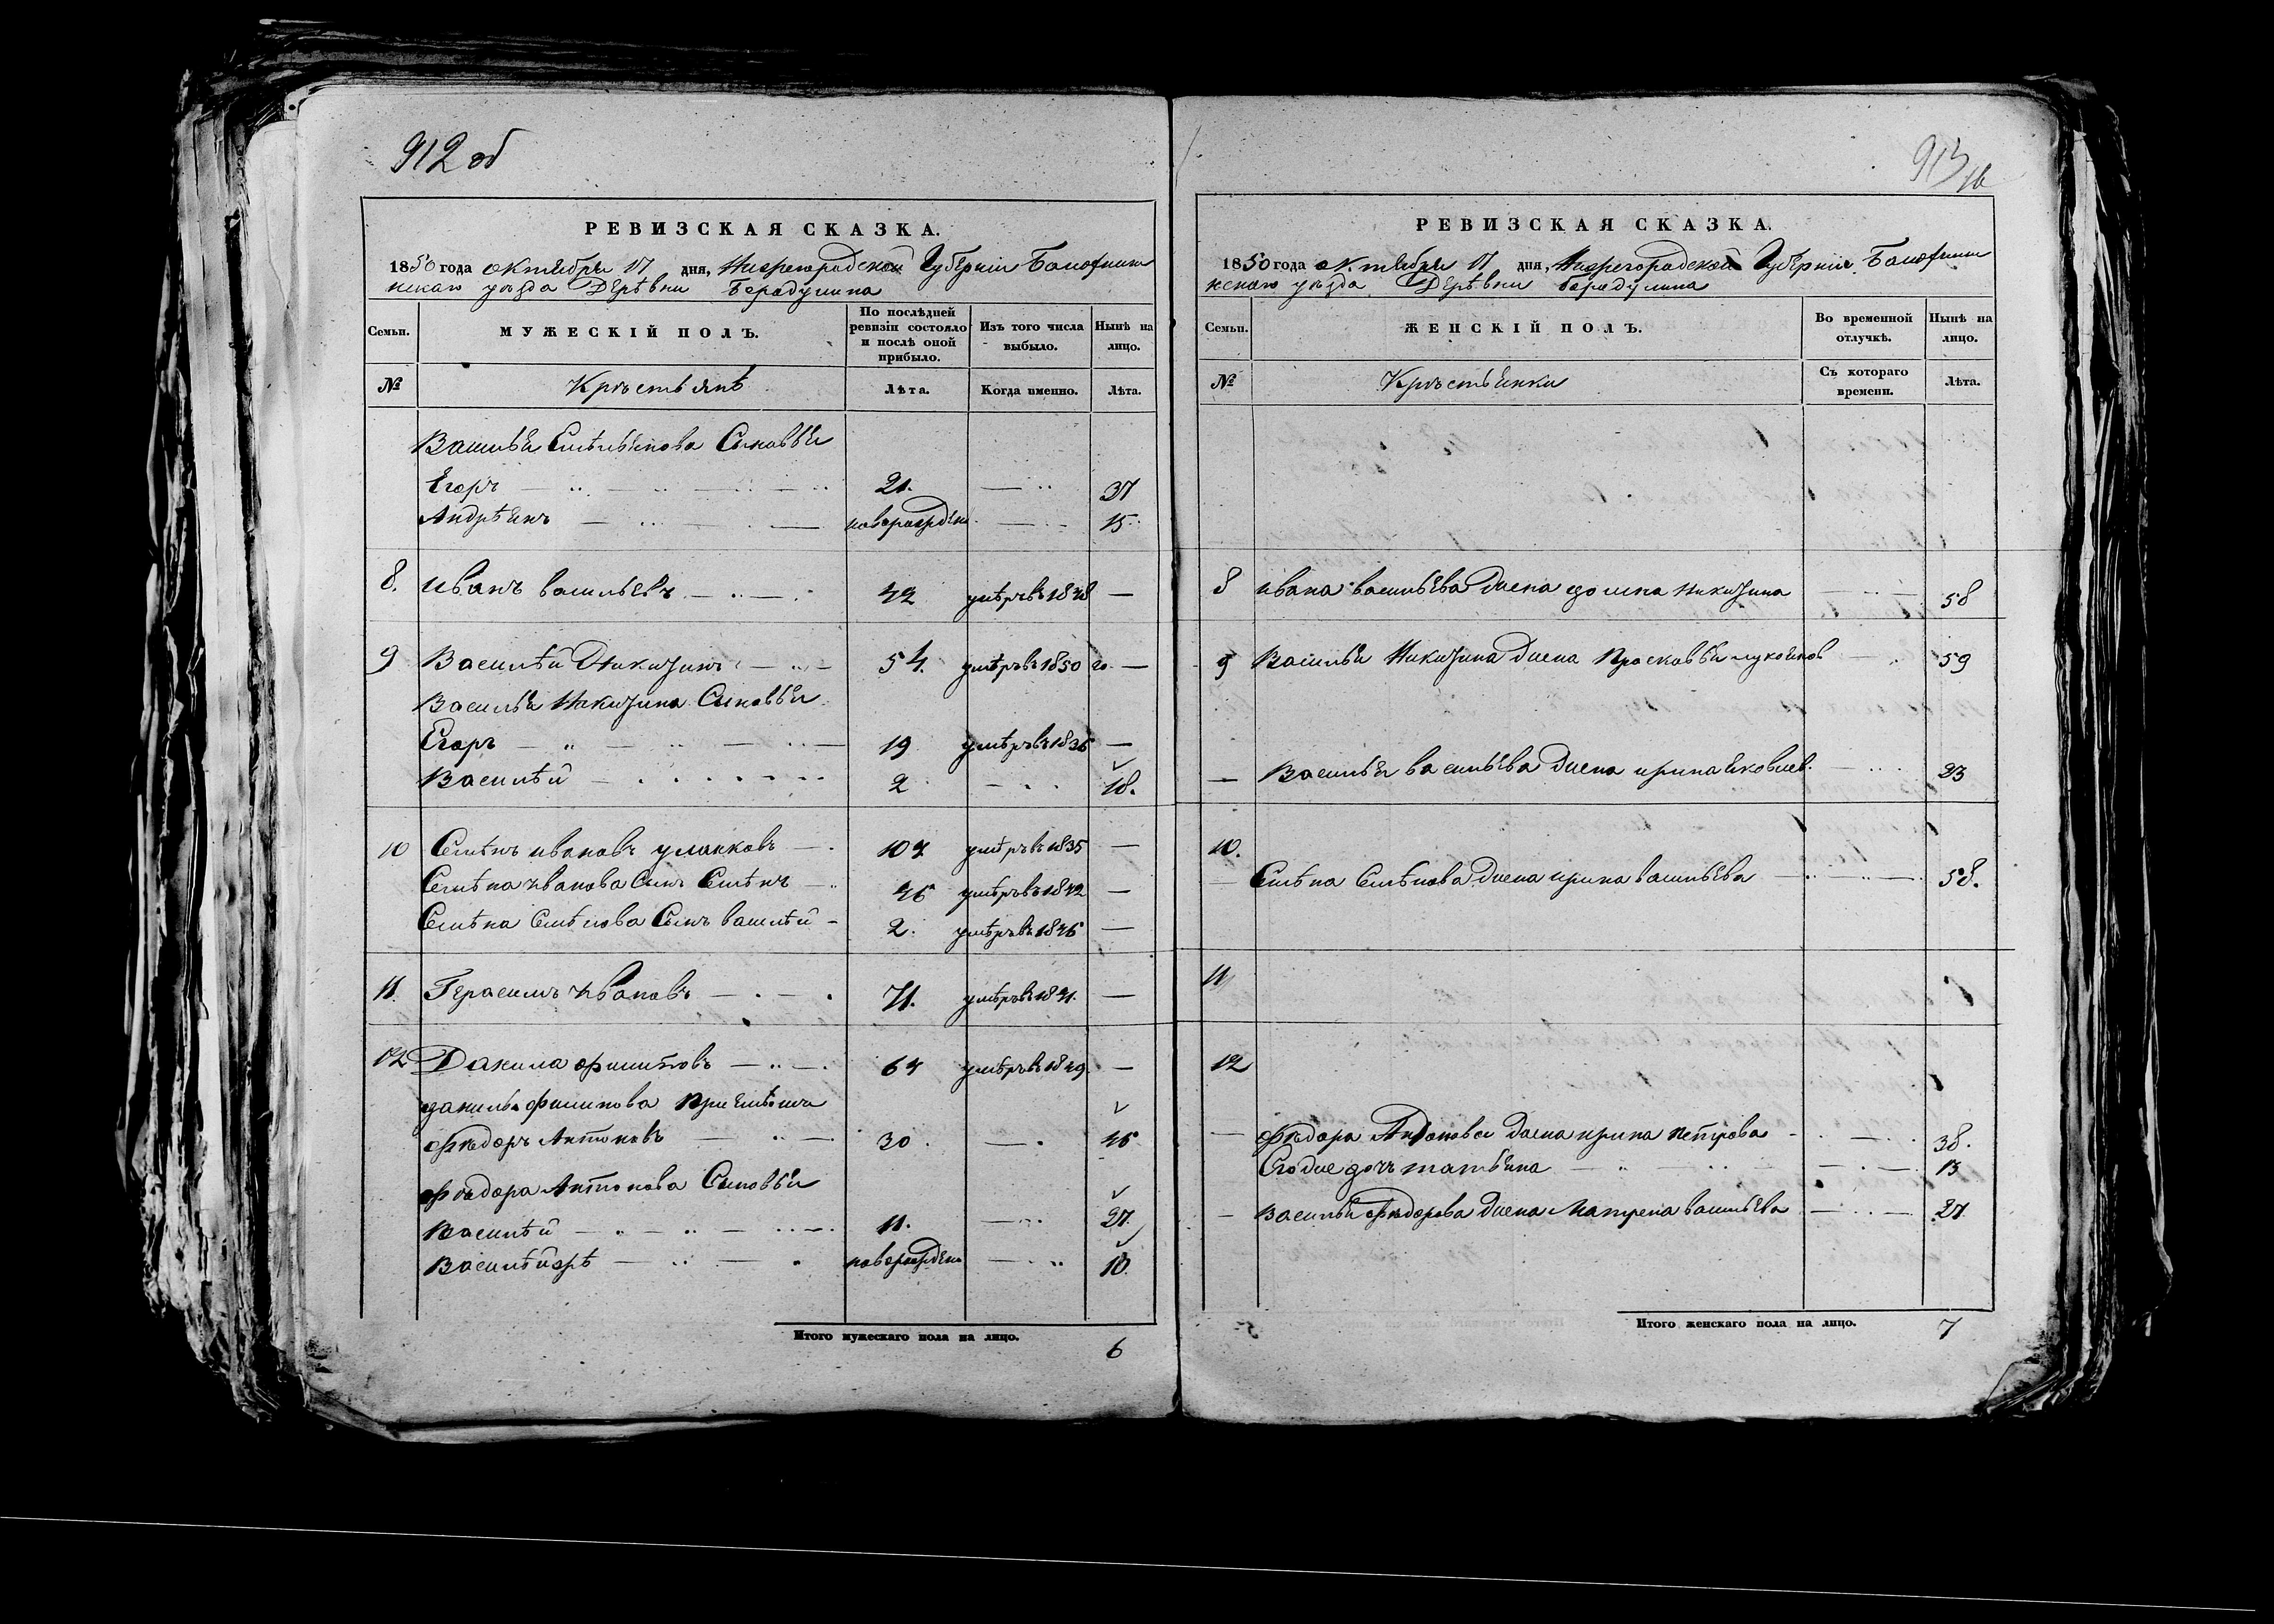 912 об
РЕВИЗСКАЯ СКАЗКА.
1850 года октября 17 дня, Нижегородской Губернии Балохнин
нскаго уѣзда Дерѣвни Берадулина
Семьи. МУЖЕСКІЙ ПОЛЪ. По послѣдней ревизіи состояло и послѣ оной прибыло. Изъ того числа выбыло. Нынѣ на лицо.
№ Крѣстьянѣ Лѣта. Когда именно. Лѣта.
Васильѣя Сыновья
Егоръ 21. 37
новорожден 15
8. Иванъ васильевъ 42 умѣръ въ 1848 —
9 Василѣй Никитинъ 54. умѣръ въ 1850 го —
Василья Никитина Сыновья
Егоръ 19 умѣръ въ 1836 —
Василѣй 2 18.
10 Семѣнъ ивановъ 104 умѣръ въ 1835 —
Семѣна иванова Сынъ Семѣнъ 46 умѣръ въ 1842 —
Семѣна Семѣнова Сынъ василѣй 2. умѣръ въ 1846 —
11. Герасимъ ивановъ 71. умѣръ въ 1841. —
12 Данила филиповъ 64 умѣръ въ 1849 —
данилы филипова
Фѣдоръ Антоновъ 30. 46
Фѣдора Антонова Сыновья
Василѣй 11. 27
Василѣй новорожден 10.
Итого мужескаго пола на лицо.
6
913
РЕВИЗСКАЯ СКАЗКА.
1850 года октября 17 дня, Нижегородской Губернии Балохнин
нскаго уѣзда Дерѣвни Берадулина
Семьи. ЖЕНСКІЙ ПОЛЪ. Во временной отлучкѣ. Нынѣ на лицо.
№ Крѣстьянки Съ котораго времени. Лѣта.
8 ивана васильева жена домна никитина 58
9 Василья Никитина жена Прасковья 59
— Василья васильева жена ирина яковлев. 23
10.
— Семѣна Семѣнова жена ирина васильева 58.
11
12
— Фѣдора Антонова жена ирина петрова 38.
Ево же дочь татьяна 13
— Василья Фѣдорова жена Матрена васильева 27
Итого женскаго пола на лицо.
7